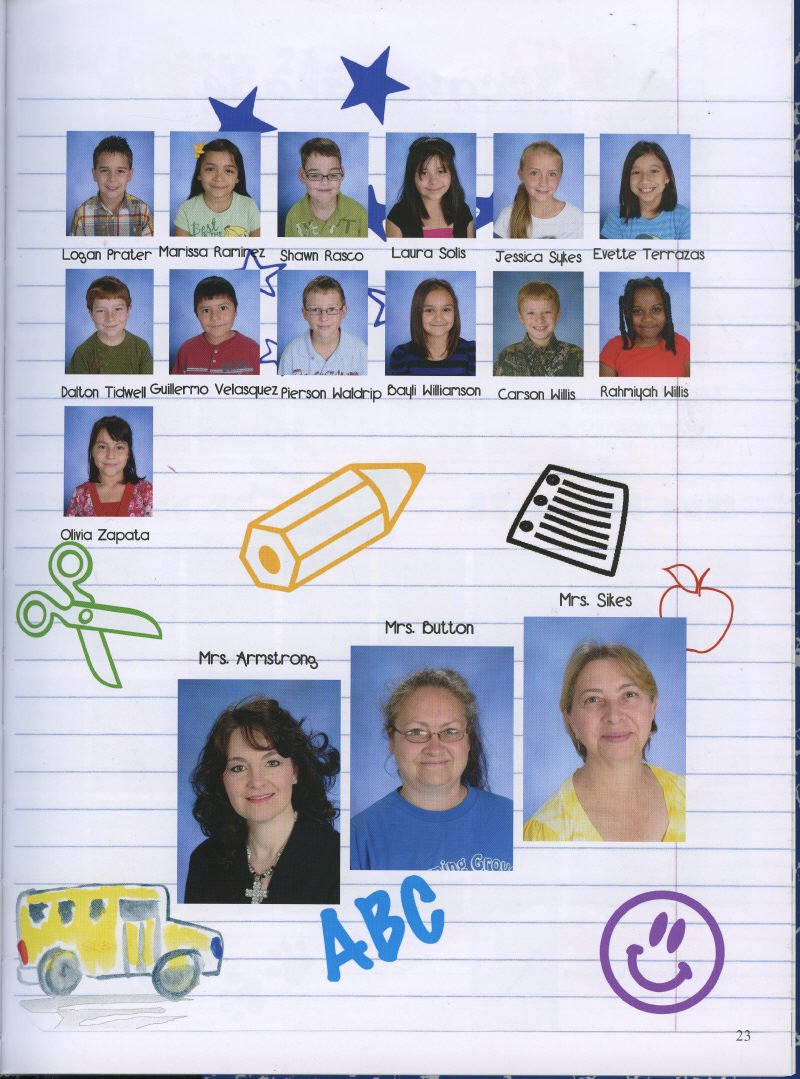 Logan Prater Marissa Ramirez Shawn Rasco Laura Solis Jessica Sykes Evette Terrazas
Dalton Tidwell Guillermo Velasquez Pierson Waldrip Bayli Williamson Carson Willis Rahmiyah Willis
Olivia Zapata
Mrs. Sikes
Mrs. Button
Mrs. Armstrong
ABC
23